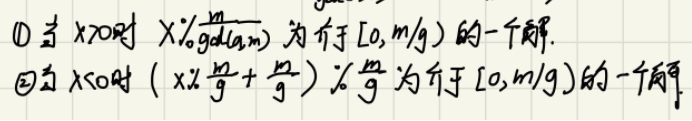 ① 当 x>0时 x%m/gcd(a,m) 为介于[0,m/g)的一个解.
② 当 x<0时 (x%m/g+m/g)%m/g 为介于[0,m/g)的一个解.